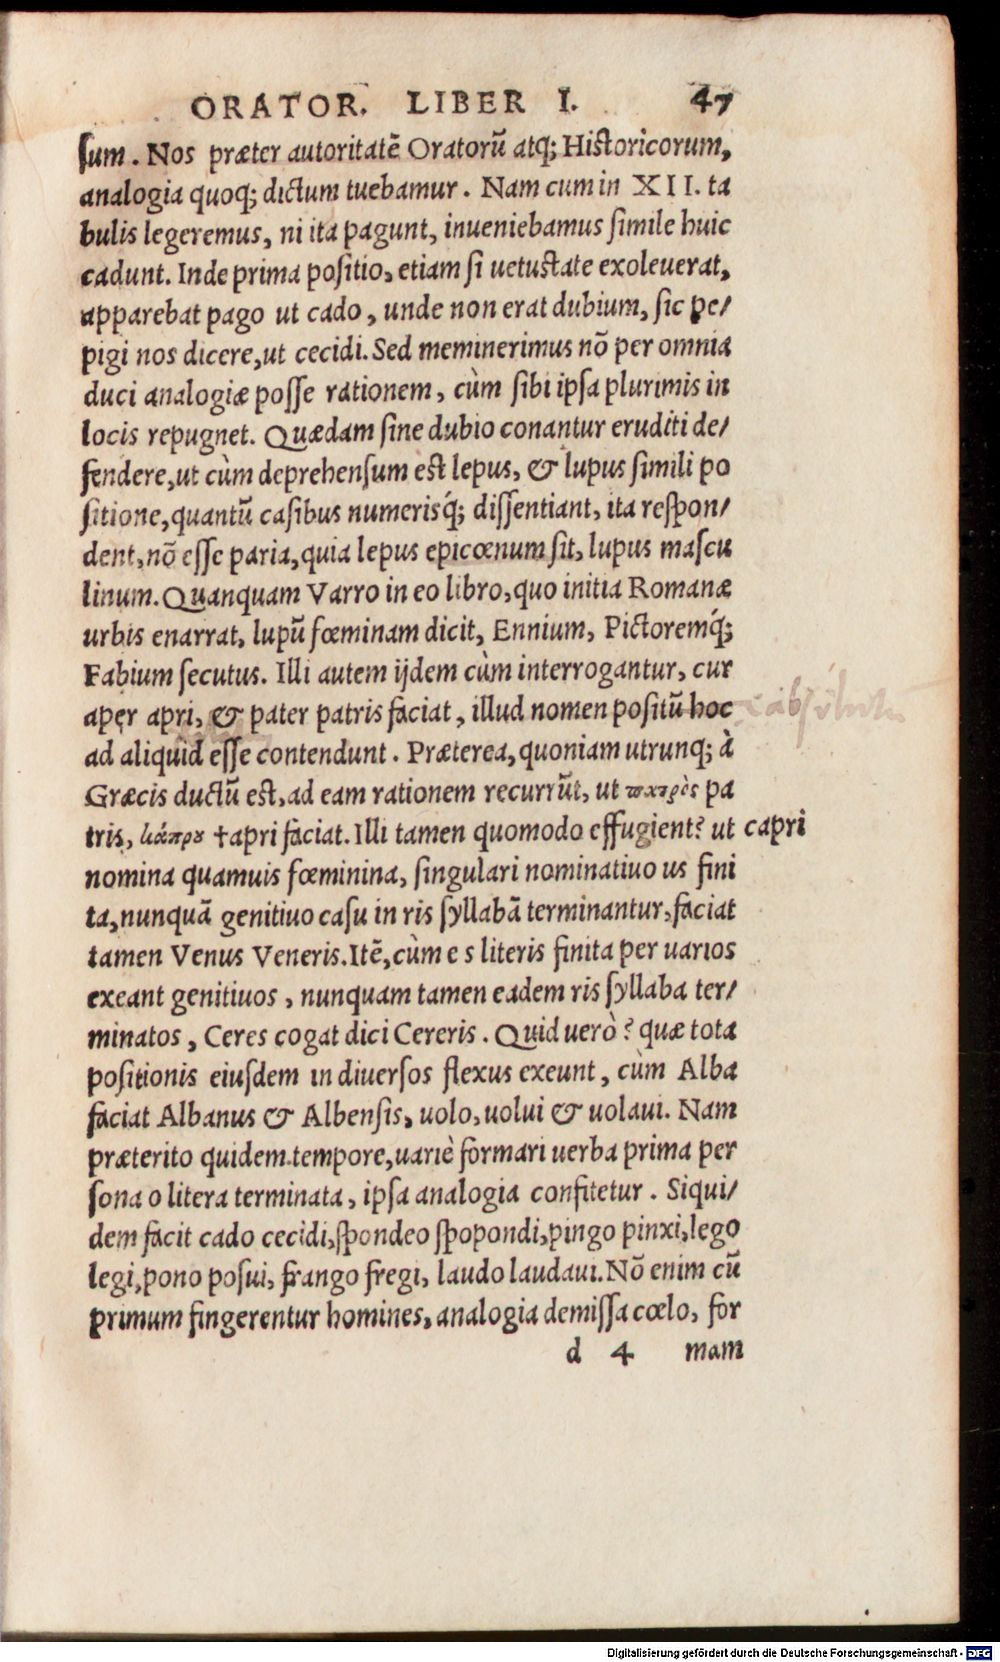 ORATOR. LIBER I. 47
sum. Nos præter autoritatē Oratorū atq; Historicorum,
analogia quoq; dictum tuebamur. Nam cum in XII. ta
bulis legeremus, ni ita pagunt, inueniebamus simile huic
cadunt. Inde prima positio, etiam si uetustate exoleuerat,
apparebat pago ut cado, unde non erat dubium, sic pe/
pigi nos dicere, ut cecidi. Sed meminerimus nō per omnia
duci analogiæ posse rationem, cùm sibi ipsa plurimis in
locis repugnet. Quædam sine dubio conantur eruditi de/
fendere, ut cùm deprehensum est lepus, & lupus simili po
sitione, quantū casibus numerisq́; dissentiant, ita respon/
dent, nō esse paria, quia lepus epicœnum sit, lupus mascu
linum. Quanquam Varro in eo libro, quo initia Romanæ
urbis enarrat, lupū fœminam dicit, Ennium, Pictoremq́;
Fabium secutus. Illi autem ijdem cùm interrogantur, cur
aper apri, & pater patris faciat, illud nomen positū hoc
ad aliquid esse contendunt. Præterea, quoniam utrunq; à
Græcis ductū est, ad eam rationem recurrūt, ut πατρὸς pa
tris, κάπρου †apri faciat. Illi tamen quomodo effugient? ut capri
nomina quamuis fœminina, singulari nominatiuo us fini
ta, nunquā genitiuo casu in ris syllabā terminantur, faciat
tamen Venus Veneris. Itē, cùm e s literis finita per uarios
exeant genitiuos, nunquam tamen eadem ris syllaba ter/
minatos, Ceres cogat dici Cereris. Quid uerò? quæ tota
positionis eiusdem in diuersos flexus exeunt, cùm Alba
faciat Albanus & Albensis, uolo, uolui & uolaui. Nam
præterito quidem tempore, uariè formari uerba prima per
sona o litera terminata, ipsa analogia confitetur. Siqui/
dem facit cado cecidi, spondeo spopondi, pingo pinxi, lego
legi, pono posui, frango fregi, laudo laudaui. Nō enim cū
primum fingerentur homines, analogia demissa cœlo, for
d 4 mam
Digitalisierung gefördert durch die Deutsche Forschungsgemeinschaft - DFG